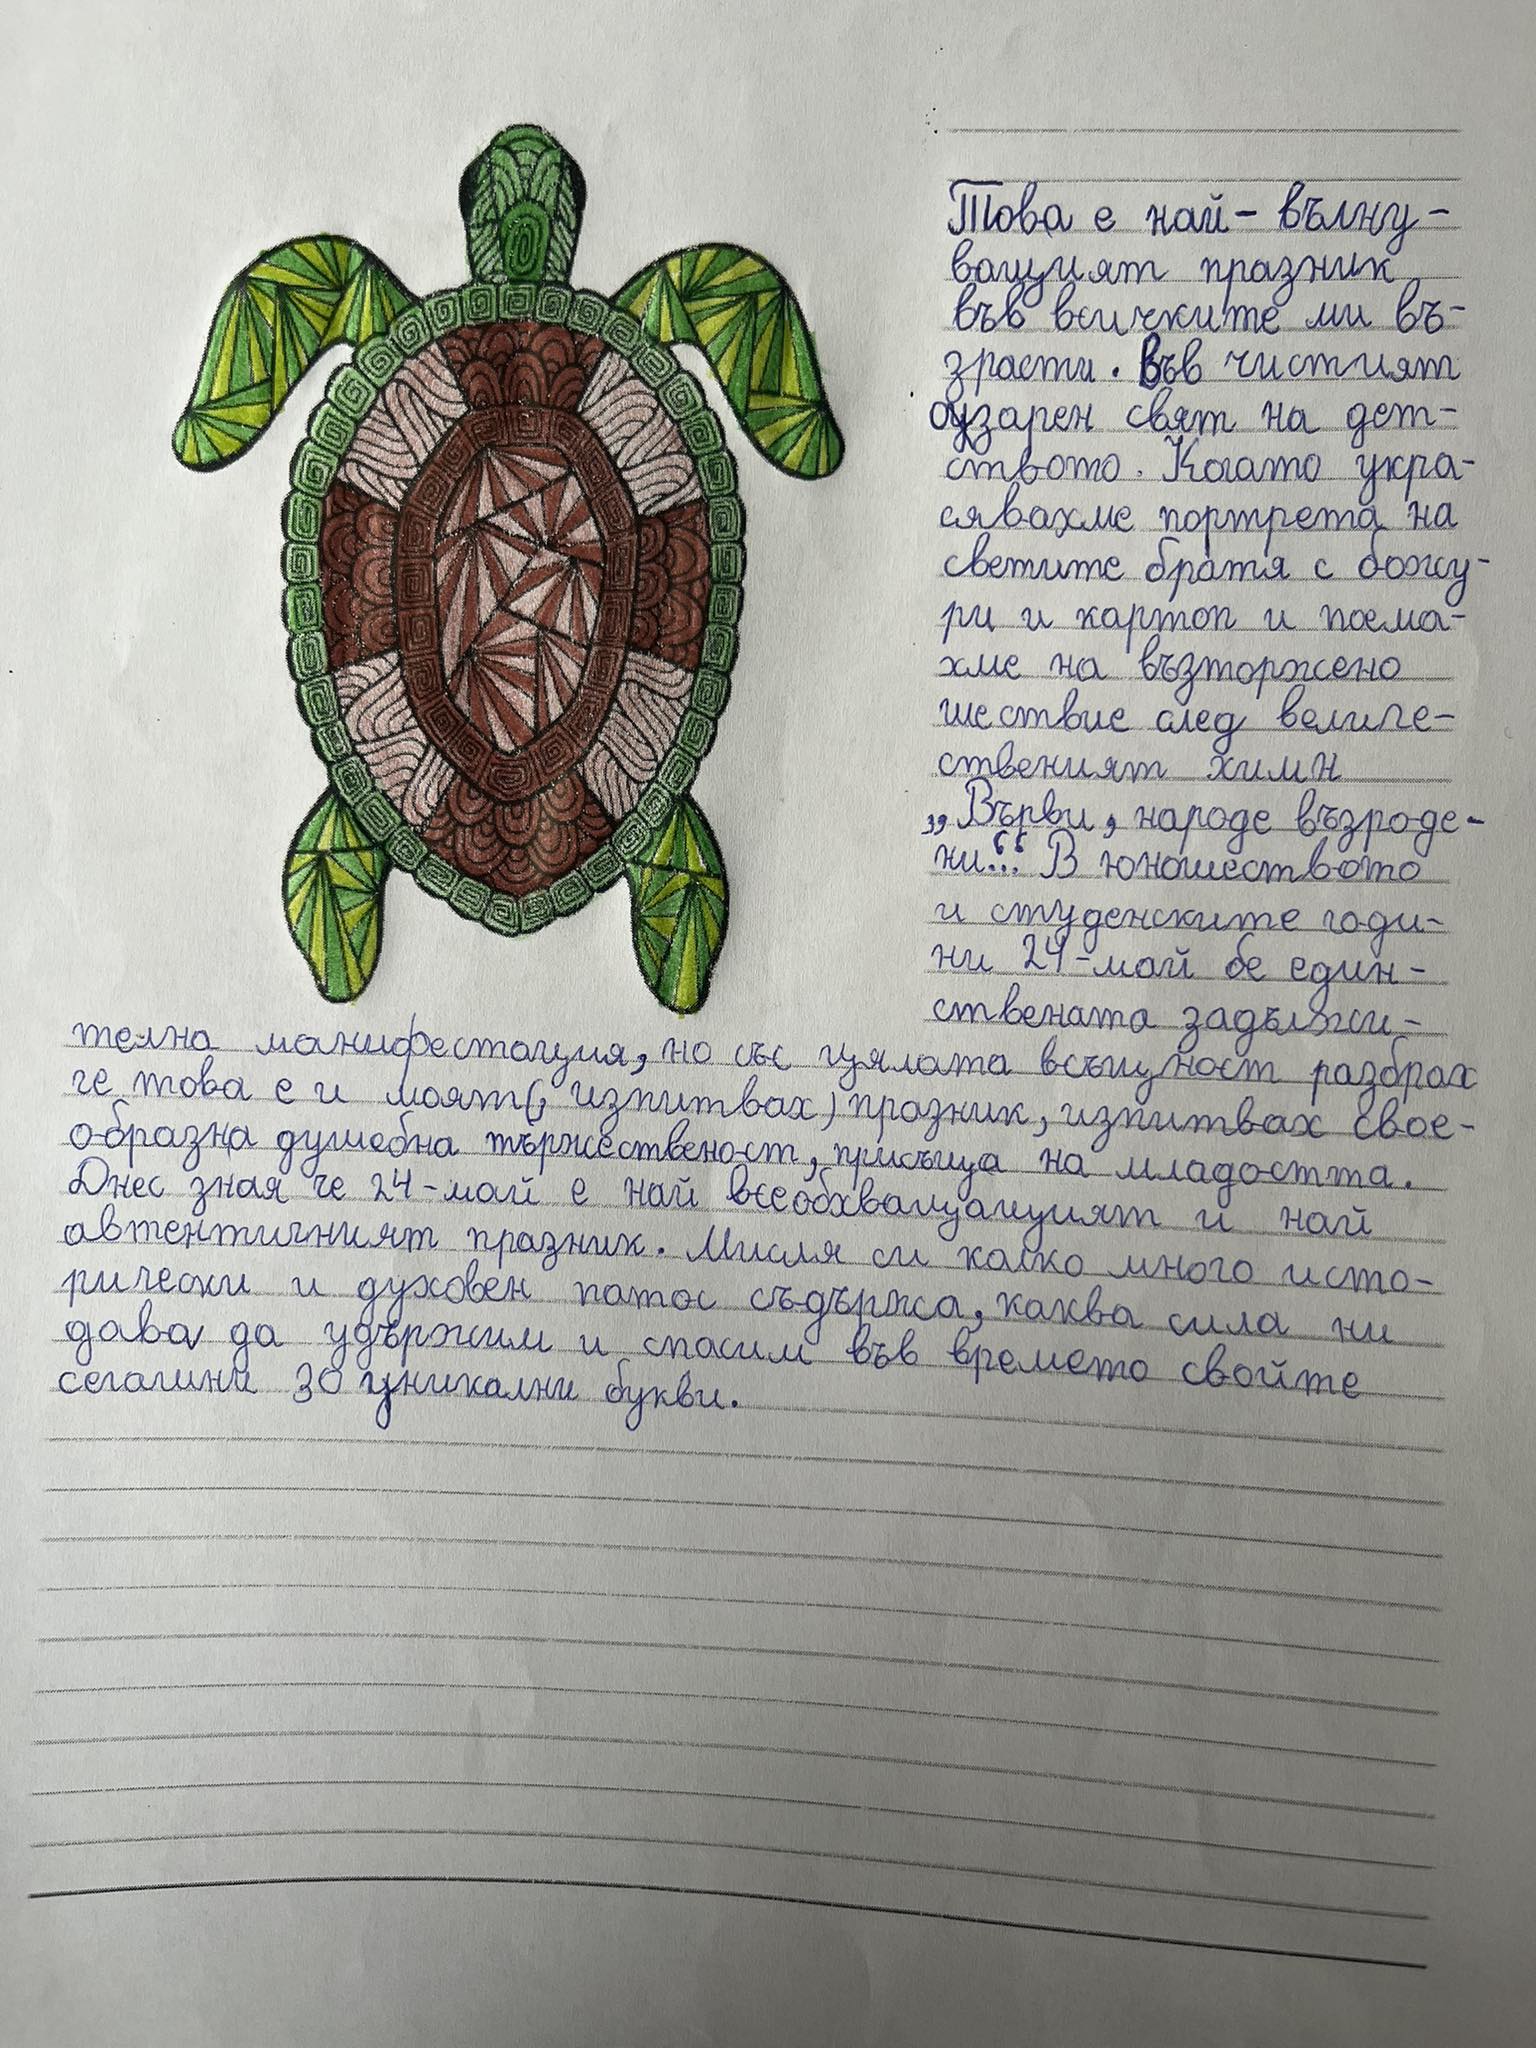 Това е най-вълну-
ващият празник
във всичките ми въ-
зрасти. Във чистият
озарен свят на дет-
ството. Когато укра-
сявахме портрета на
светите братя с божу-
ри и картоп и поема-
хме на възторжено
шествие след величе-
ственият химн
„Върви, народе възроде-
ни“... В юношеството
и студенските годи-
ни 24-май бе един-
ствената задължи-
телна манифестация, но със цялата всъщност разбрах
че това е и моят(, изпитвах) празник, изпитвах свое-
образна душебна тържественост, присъща на младостта.
Днес зная че 24-май е най всеобхващащият и най
автентичният празник. Мисля си колко много исто-
рически и духовен патос съдържа, каква сила ни
дава да удържим и спасим във времето свойте
сегашни 30 уникални букви.